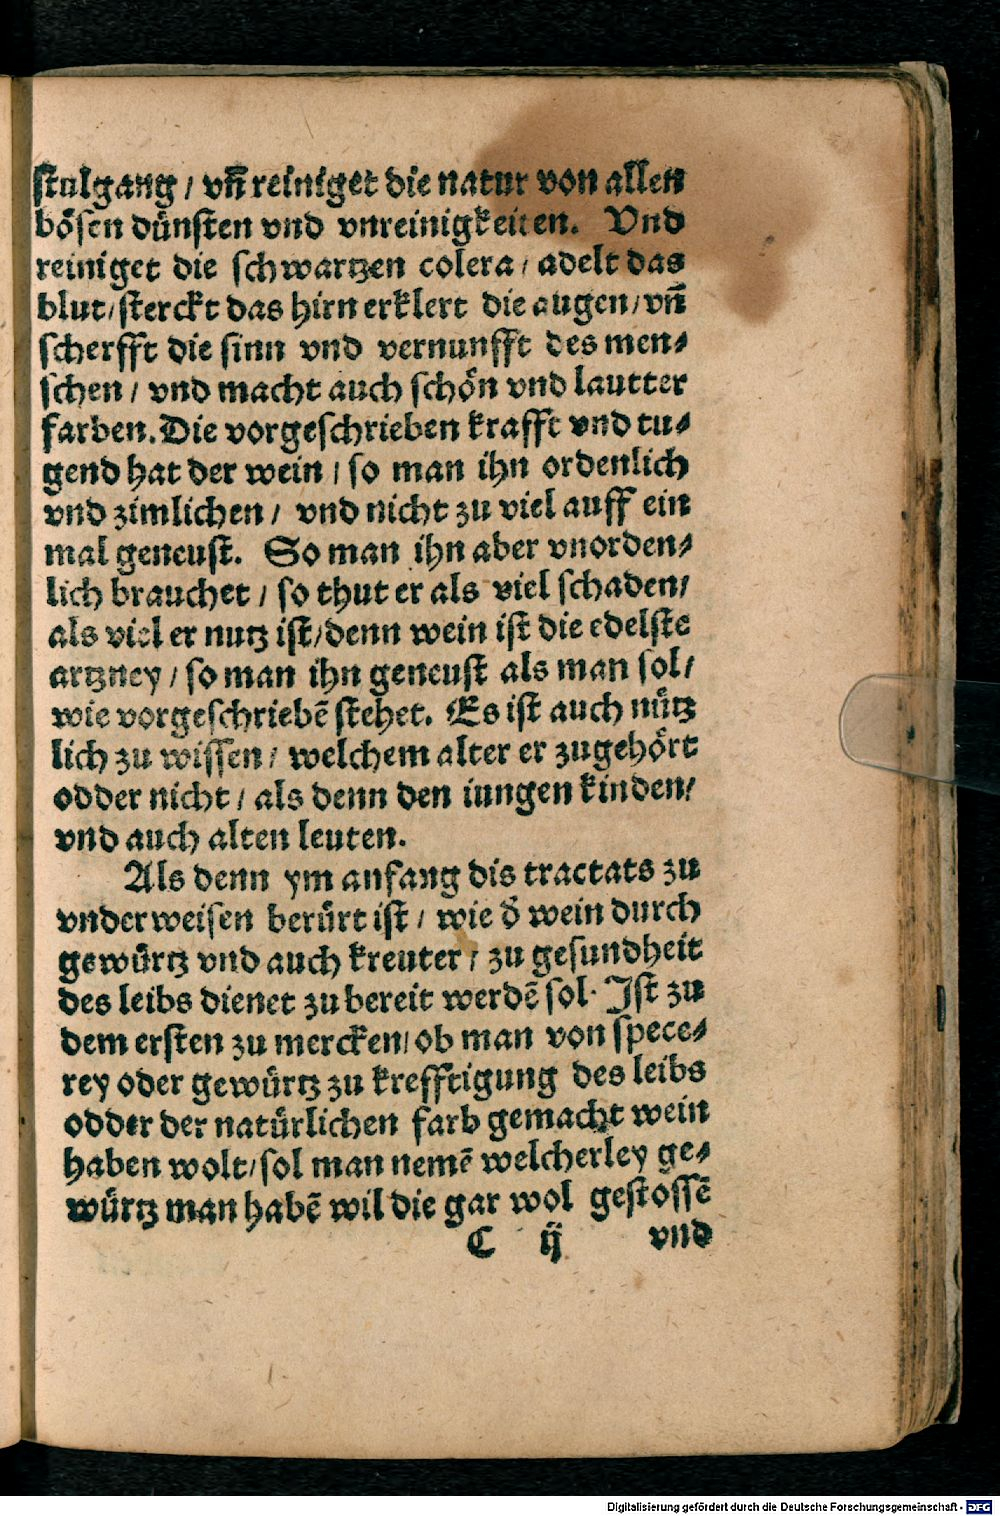 stulgang / vn̄ reiniget die natur von allen
bösen dünsten vnd vnreinigkeiten. Vnd
reiniget die schwartzen colera / adelt das
blut / sterckt das hirn erklert die augen / vn̄
scherfft die sinn vnd vernunfft des men⸗
schen / vnd macht auch schön vnd lautter
farben. Die vorgeschrieben krafft vnd tu⸗
gend hat der wein / so man ihn ordenlich
vnd zimlichen / vnd nicht zu viel auff ein
mal geneust. So man ihn aber vnorden⸗
lich brauchet / so thut er als viel schaden /
als viel er nutz ist / denn wein ist die edelste
artzney / so man ihn geneust als man sol /
wie vorgeschriebē stehet. Es ist auch nütz
lich zu wissen / welchem alter er zugehört
odder nicht / als denn den iungen kinden /
vnd auch alten leuten.
Als denn ym anfang dis tractats zu
vnderweisen berürt ist / wie d̄ wein durch
gewürtz vnd auch kreuter / zu gesundheit
des leibs dienet zu bereit werdē sol. Ist zu
dem ersten zu mercken / ob man von spece⸗
rey oder gewürtz zu krefftigung des leibs
odder der natürlichen farb gemacht wein
haben wolt / sol man nemē welcherley ge⸗
würtz man habē wil die gar wol gestossē
C ij vnd
Digitalisierung gefördert durch die Deutsche Forschungsgemeinschaft - DFG